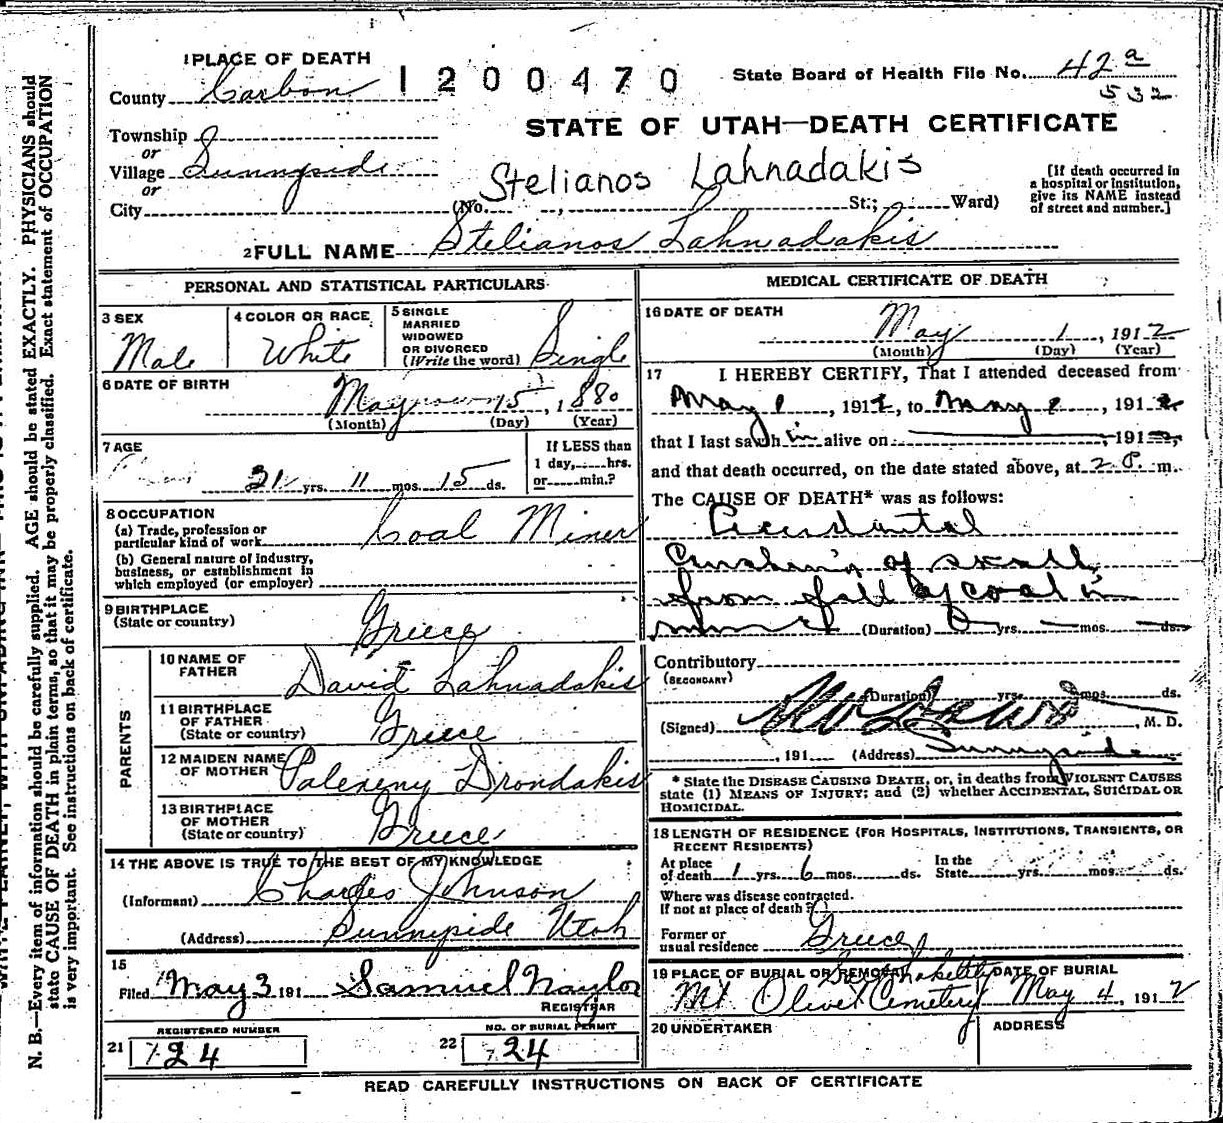 1 PLACE OF DEATH
County Carbon
1200470
State Board of Health File No. 42a
532
STATE OF UTAH—DEATH CERTIFICATE
Township
or
Village Sunnyside
or
City
Stelianos Lahnadakis
(No. St.; Ward)
[If death occurred in a hospital or institution, give its NAME instead of street and number.]
2 FULL NAME Stelianos Lahnadakis
PERSONAL AND STATISTICAL PARTICULARS
3 SEX
Male
4 COLOR OR RACE
White
5 SINGLE
MARRIED
WIDOWED
OR DIVORCED
(Write the word) Single
6 DATE OF BIRTH
May 15, 1880
(Month) (Day) (Year)
7 AGE
31 yrs. 11 mos. 15 ds.
If LESS than
1 day, hrs.
or min.?
8 OCCUPATION
(a) Trade, profession or
particular kind of work Coal Miner
(b) General nature of industry,
business, or establishment in
which employed (or employer)
9 BIRTHPLACE
(State or country)
Greece
PARENTS
10 NAME OF
FATHER
David Lahnadakis
11 BIRTHPLACE
OF FATHER
(State or country)
Greece
12 MAIDEN NAME
OF MOTHER
Polexeny Drondakis
13 BIRTHPLACE
OF MOTHER
(State or country)
Greece
14 THE ABOVE IS TRUE TO THE BEST OF MY KNOWLEDGE
(Informant) Charles Johnson
(Address) Sunnyside Utah
15
Filed May 3 191 Samuel Naylor
REGISTRAR
REGISTERED NUMBER
21 24
NO. OF BURIAL PERMIT
22 24
MEDICAL CERTIFICATE OF DEATH
16 DATE OF DEATH
May 1, 1912
(Month) (Day) (Year)
17 I HEREBY CERTIFY, That I attended deceased from
May 1, 1912, to May 1, 1912
that I last saw h im alive on , 191
and that death occurred, on the date stated above, at 2 P. m.
The CAUSE OF DEATH* was as follows:
Accidental
Crushing of skull
from fall of coal in
mine (Duration) yrs. mos. ds.
Contributory
(SECONDARY)
(Duration) yrs. mos. ds.
(Signed) , M. D.
, 191 (Address) Sunnyside
* State the DISEASE CAUSING DEATH, or, in deaths from VIOLENT CAUSES
state (1) MEANS OF INJURY; and (2) whether ACCIDENTAL, SUICIDAL OR
HOMICIDAL.
18 LENGTH OF RESIDENCE (FOR HOSPITALS, INSTITUTIONS, TRANSIENTS, OR
RECENT RESIDENTS)
At place
of death 1 yrs. 6 mos. ds.
In the
State yrs. mos. ds.
Where was disease contracted.
If not at place of death?
Former or
usual residence Greece
19 PLACE OF BURIAL OR REMOVAL DATE OF BURIAL
Salt Lake City
Mt Olivet Cemetery May 4, 1912
20 UNDERTAKER
ADDRESS
READ CAREFULLY INSTRUCTIONS ON BACK OF CERTIFICATE
N. B.—Every item of information should be carefully supplied. AGE should be stated EXACTLY. PHYSICIANS should
state CAUSE OF DEATH in plain terms, so that it may be properly classified. Exact statement of OCCUPATION
is very important. See instructions on back of certificate.